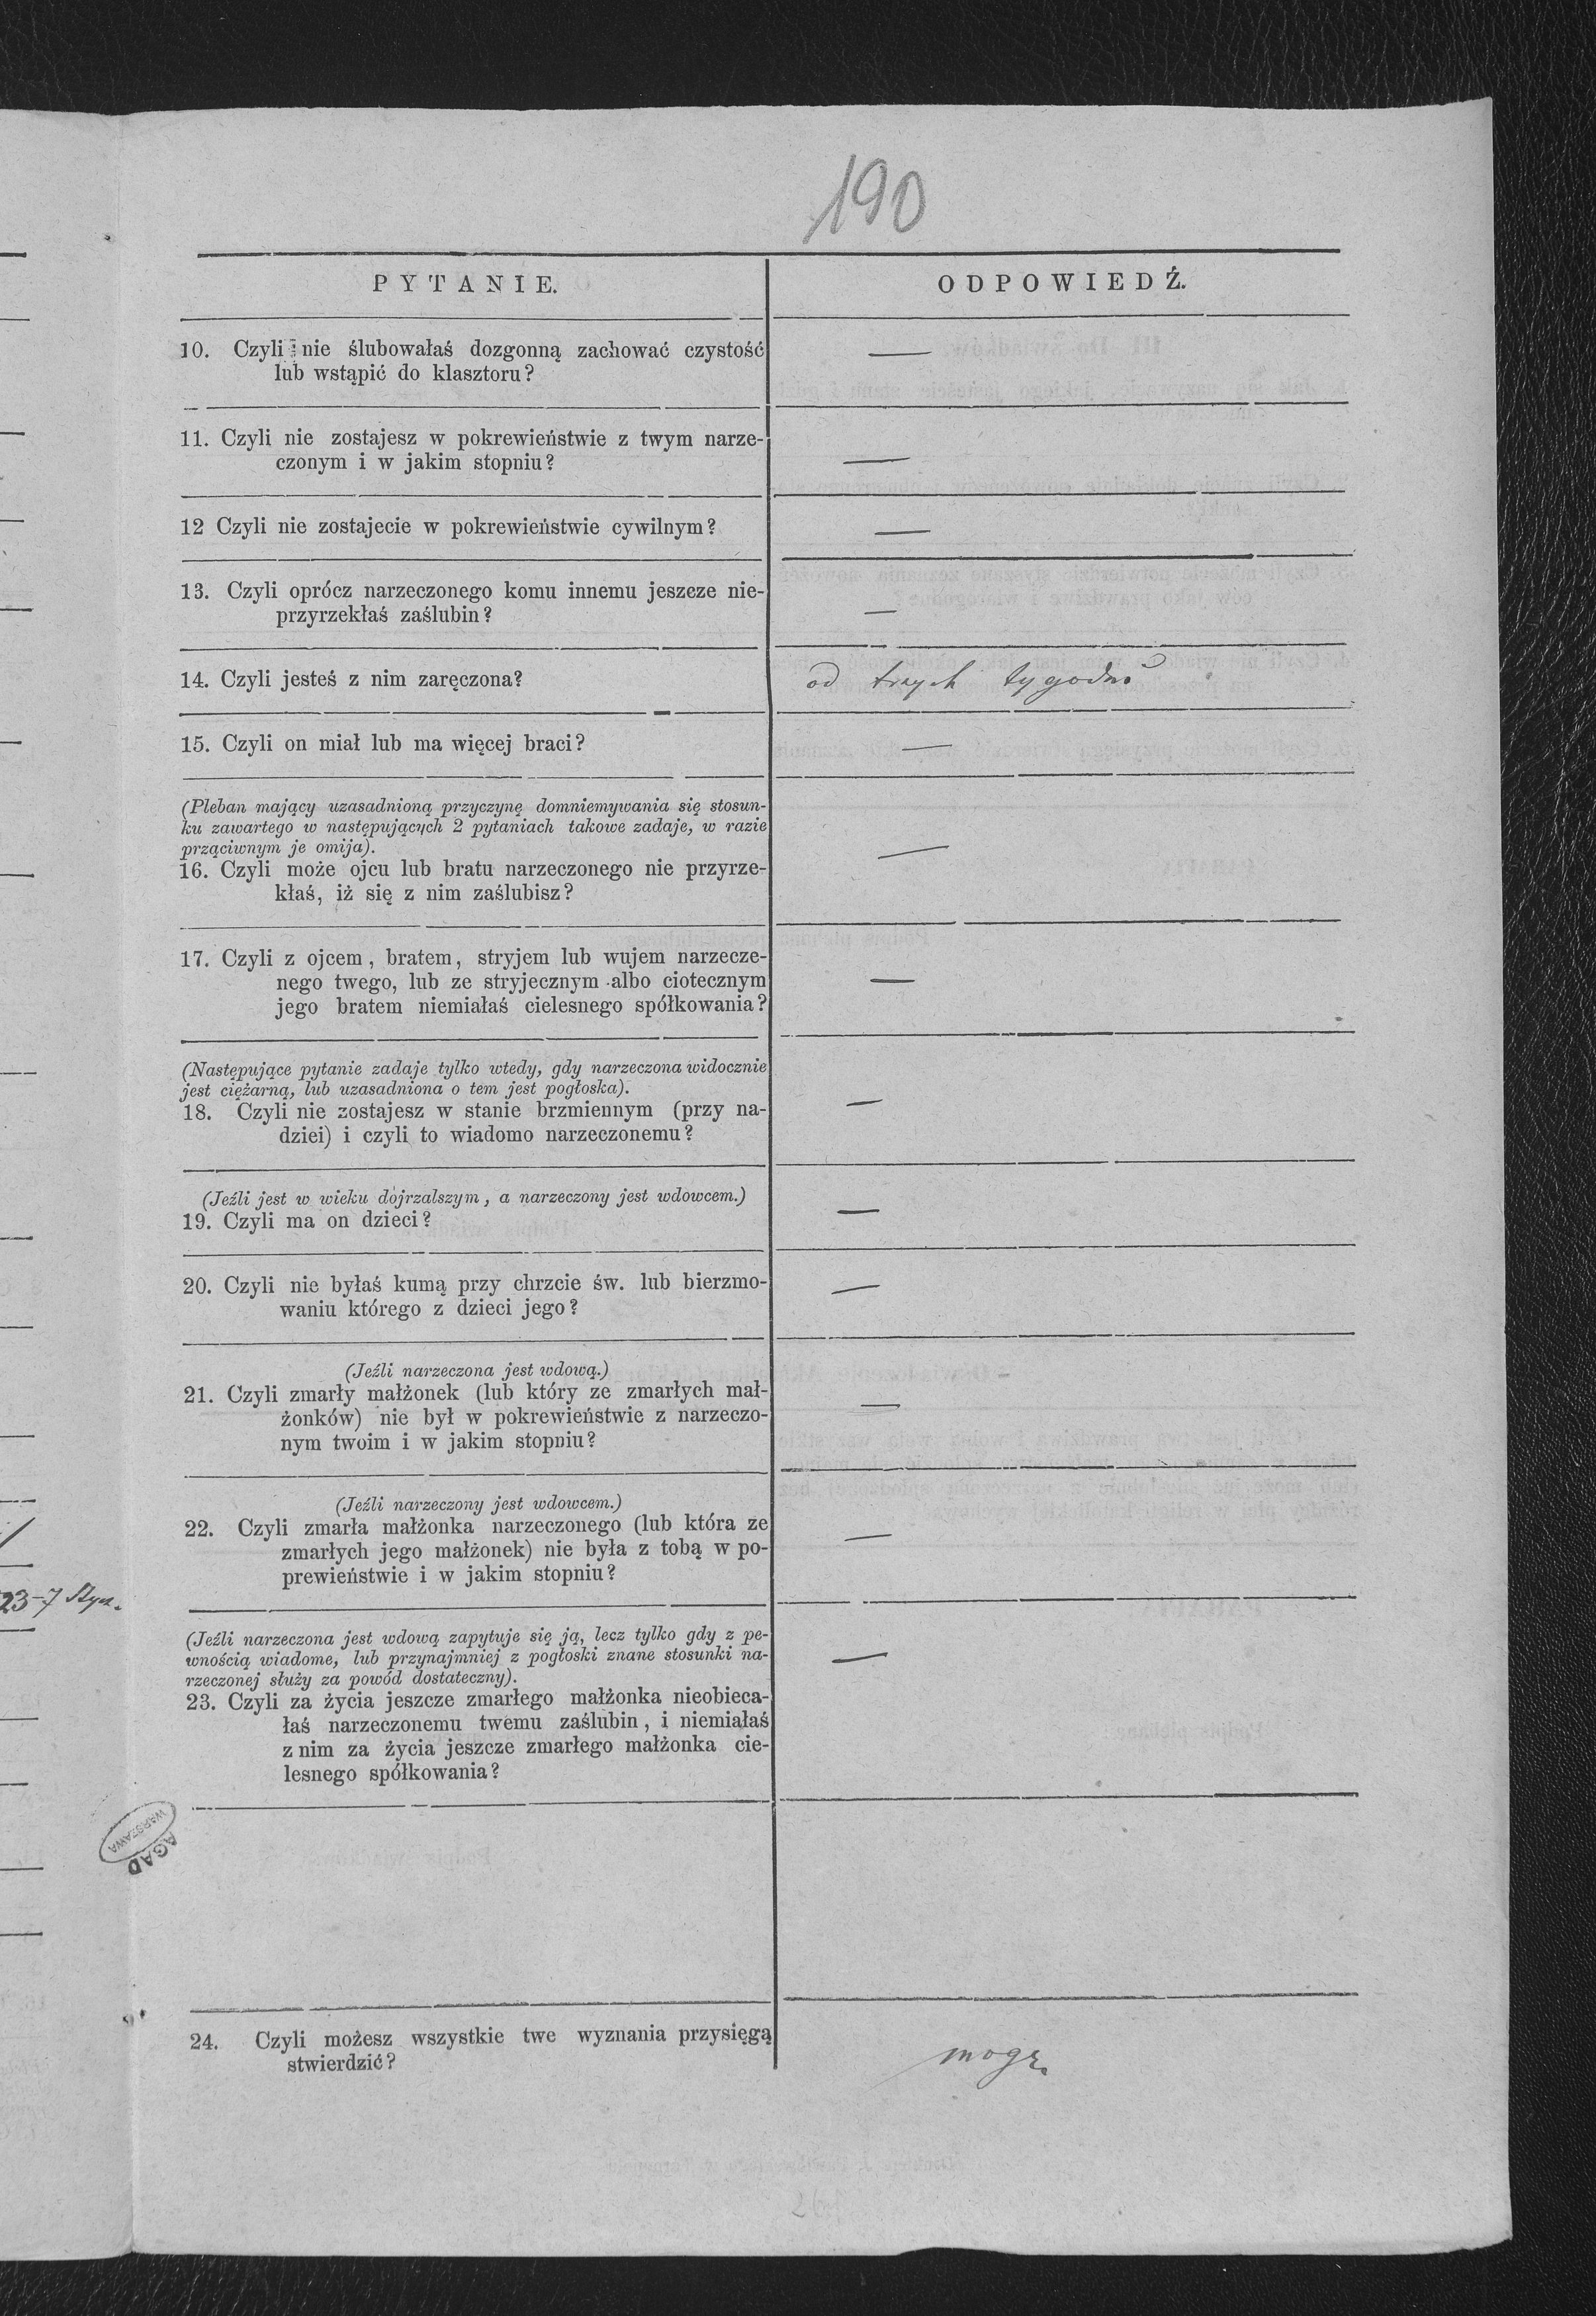 190
PYTANIE.
ODPOWIEDŹ.
10. Czyli nie ślubowałaś dozgonną zachować czystość
lub wstąpić do klasztoru?
—
11. Czyli nie zostajesz w pokrewieństwie z twym narze-
czonym i w jakim stopniu?
—
12 Czyli nie zostajecie w pokrewieństwie cywilnym?
—
13. Czyli oprócz narzeczonego komu innemu jeszcze nie-
przyrzekłaś zaślubin?
—
14. Czyli jesteś z nim zaręczona?
od trzych tygodni
15. Czyli on miał lub ma więcej braci?
—
(Pleban mający uzasadnioną przyczynę domniemywania się stosun-
ku zawartego w następujących 2 pytaniach takowe zadaje, w razie
prząciwnym je omija).
16. Czyli może ojcu lub bratu narzeczonego nie przyrze-
kłaś, iż się z nim zaślubisz?
—
17. Czyli z ojcem, bratem, stryjem lub wujem narzecze-
nego twego, lub ze stryjecznym albo ciotecznym
jego bratem niemiałaś cielesnego spółkowania?
—
(Następujące pytanie zadaje tylko wtedy, gdy narzeczona widocznie
jest ciężarną, lub uzasadniona o tem jest pogłoska).
18. Czyli nie zostajesz w stanie brzmiennym (przy na-
dziei) i czyli to wiadomo narzeczonemu?
—
(Jeźli jest w wieku dojrzalszym, a narzeczony jest wdowcem.)
19. Czyli ma on dzieci?
—
20. Czyli nie byłaś kumą przy chrzcie św. lub bierzmo-
waniu którego z dzieci jego?
—
(Jeźli narzeczona jest wdową.)
21. Czyli zmarły małżonek (lub który ze zmarłych mał-
żonków) nie był w pokrewieństwie z narzeczo-
nym twoim i w jakim stopniu?
—
(Jeźli narzeczony jest wdowcem.)
22. Czyli zmarła małżonka narzeczonego (lub która ze
zmarłych jego małżonek) nie była z tobą w po-
prewieństwie i w jakim stopniu?
—
23-7 Stycz.
(Jeźli narzeczona jest wdową zapytuje się ją, lecz tylko gdy z pe-
wnością wiadome, lub przynajmniej z pogłoski znane stosunki na-
rzeczonej służy za powód dostateczny).
23. Czyli za życia jeszcze zmarłego małżonka nieobieca-
łaś narzeczonemu twemu zaślubin, i niemiałaś
z nim za życia jeszcze zmarłego małżonka cie-
lesnego spółkowania?
—
AGAD
WARSZAWA
24. Czyli możesz wszystkie twe wyznania przysięgą
stwierdzić?
mogę.